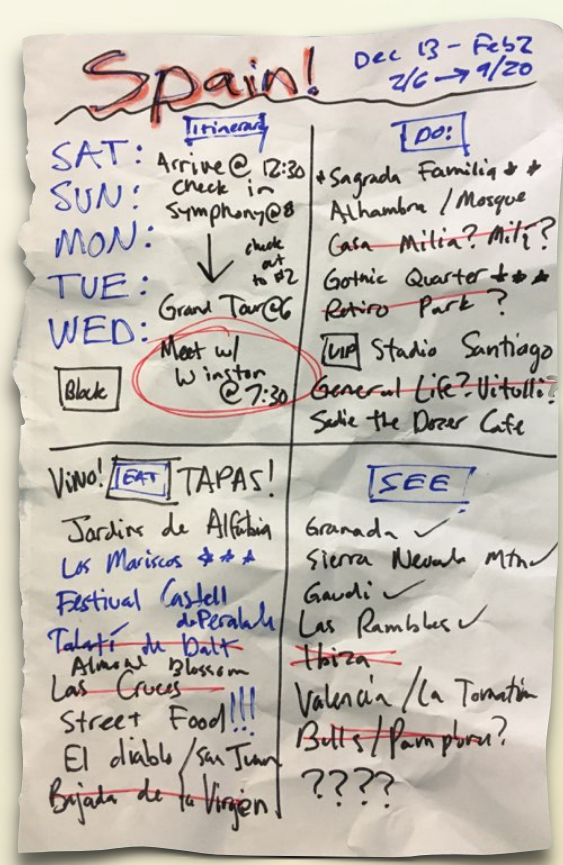 Spain!
Dec 13 - Feb 2
2/6 → 9/20
Itinerary
SAT: Arrive @ 12:30
SUN: check in
Symphony@8
MON:
↓ check
out
to #2
TUE:
Grand Tour@6
WED:
Meet w/
Winston
@ 7:30
Block
DO:
*Sagrada Familia * *
Alhambra / Mosque
Casa Milia? Milà?
Gothic Quarter * * *
Retiro Park ?
VIP Stadio Santiago
General Life? Vitolli?
Sadie the Dozer Cafe
Vino! EAT TAPAS!
Jardins de Alfabia
Los Mariscos * * *
Festival Castell
de Peralada
Talatí de Dalt
Almond Blossom
Las Cruces
Street Food!!!
El diablo / San Juan
Bajada de la Virgen
SEE
Granada ✓
Sierra Nevada Mtn ✓
Gaudi ✓
Las Ramblas ✓
Ibiza
Valencia / La Tomatina
Bulls / Pamplona?
????